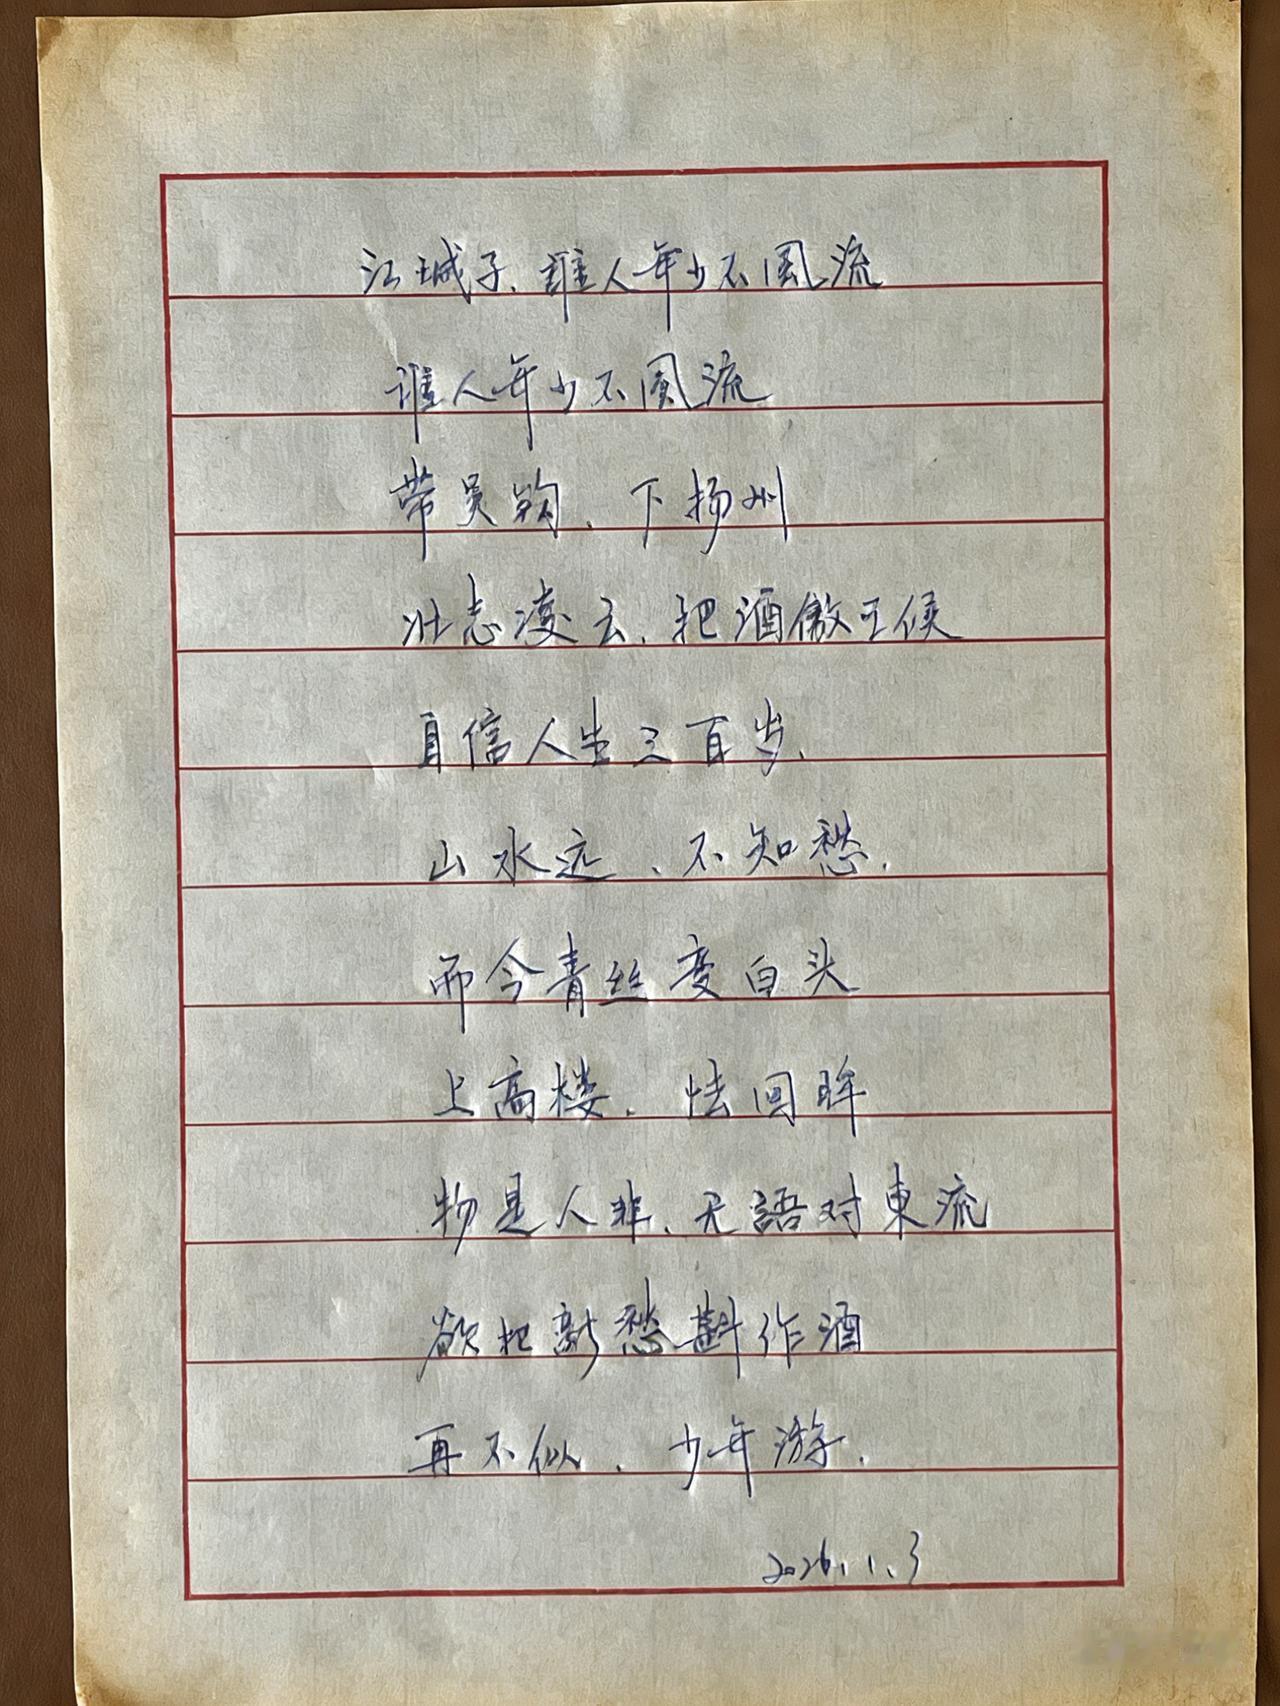 江城子、谁人年少不風流
谁人年少不風流
带吴钩、下扬州
壮志凌云、把酒傲王候
自信人生三百岁、
山水远、不知愁.
而今青丝变白头
上高楼. 怯回眸
物是人非、无語对東流
欲把新愁斟作酒
再不似、少年游.
2026.1.3